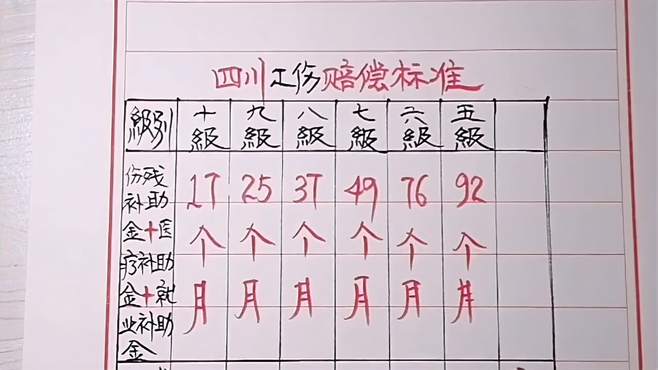 四川工伤赔偿标准
級别 十級 九級 八級 七級 六級 五級
伤残补助金+医疗补助金+就业补助金 17个月 25个月 37个月 49个月 76个月 92个月